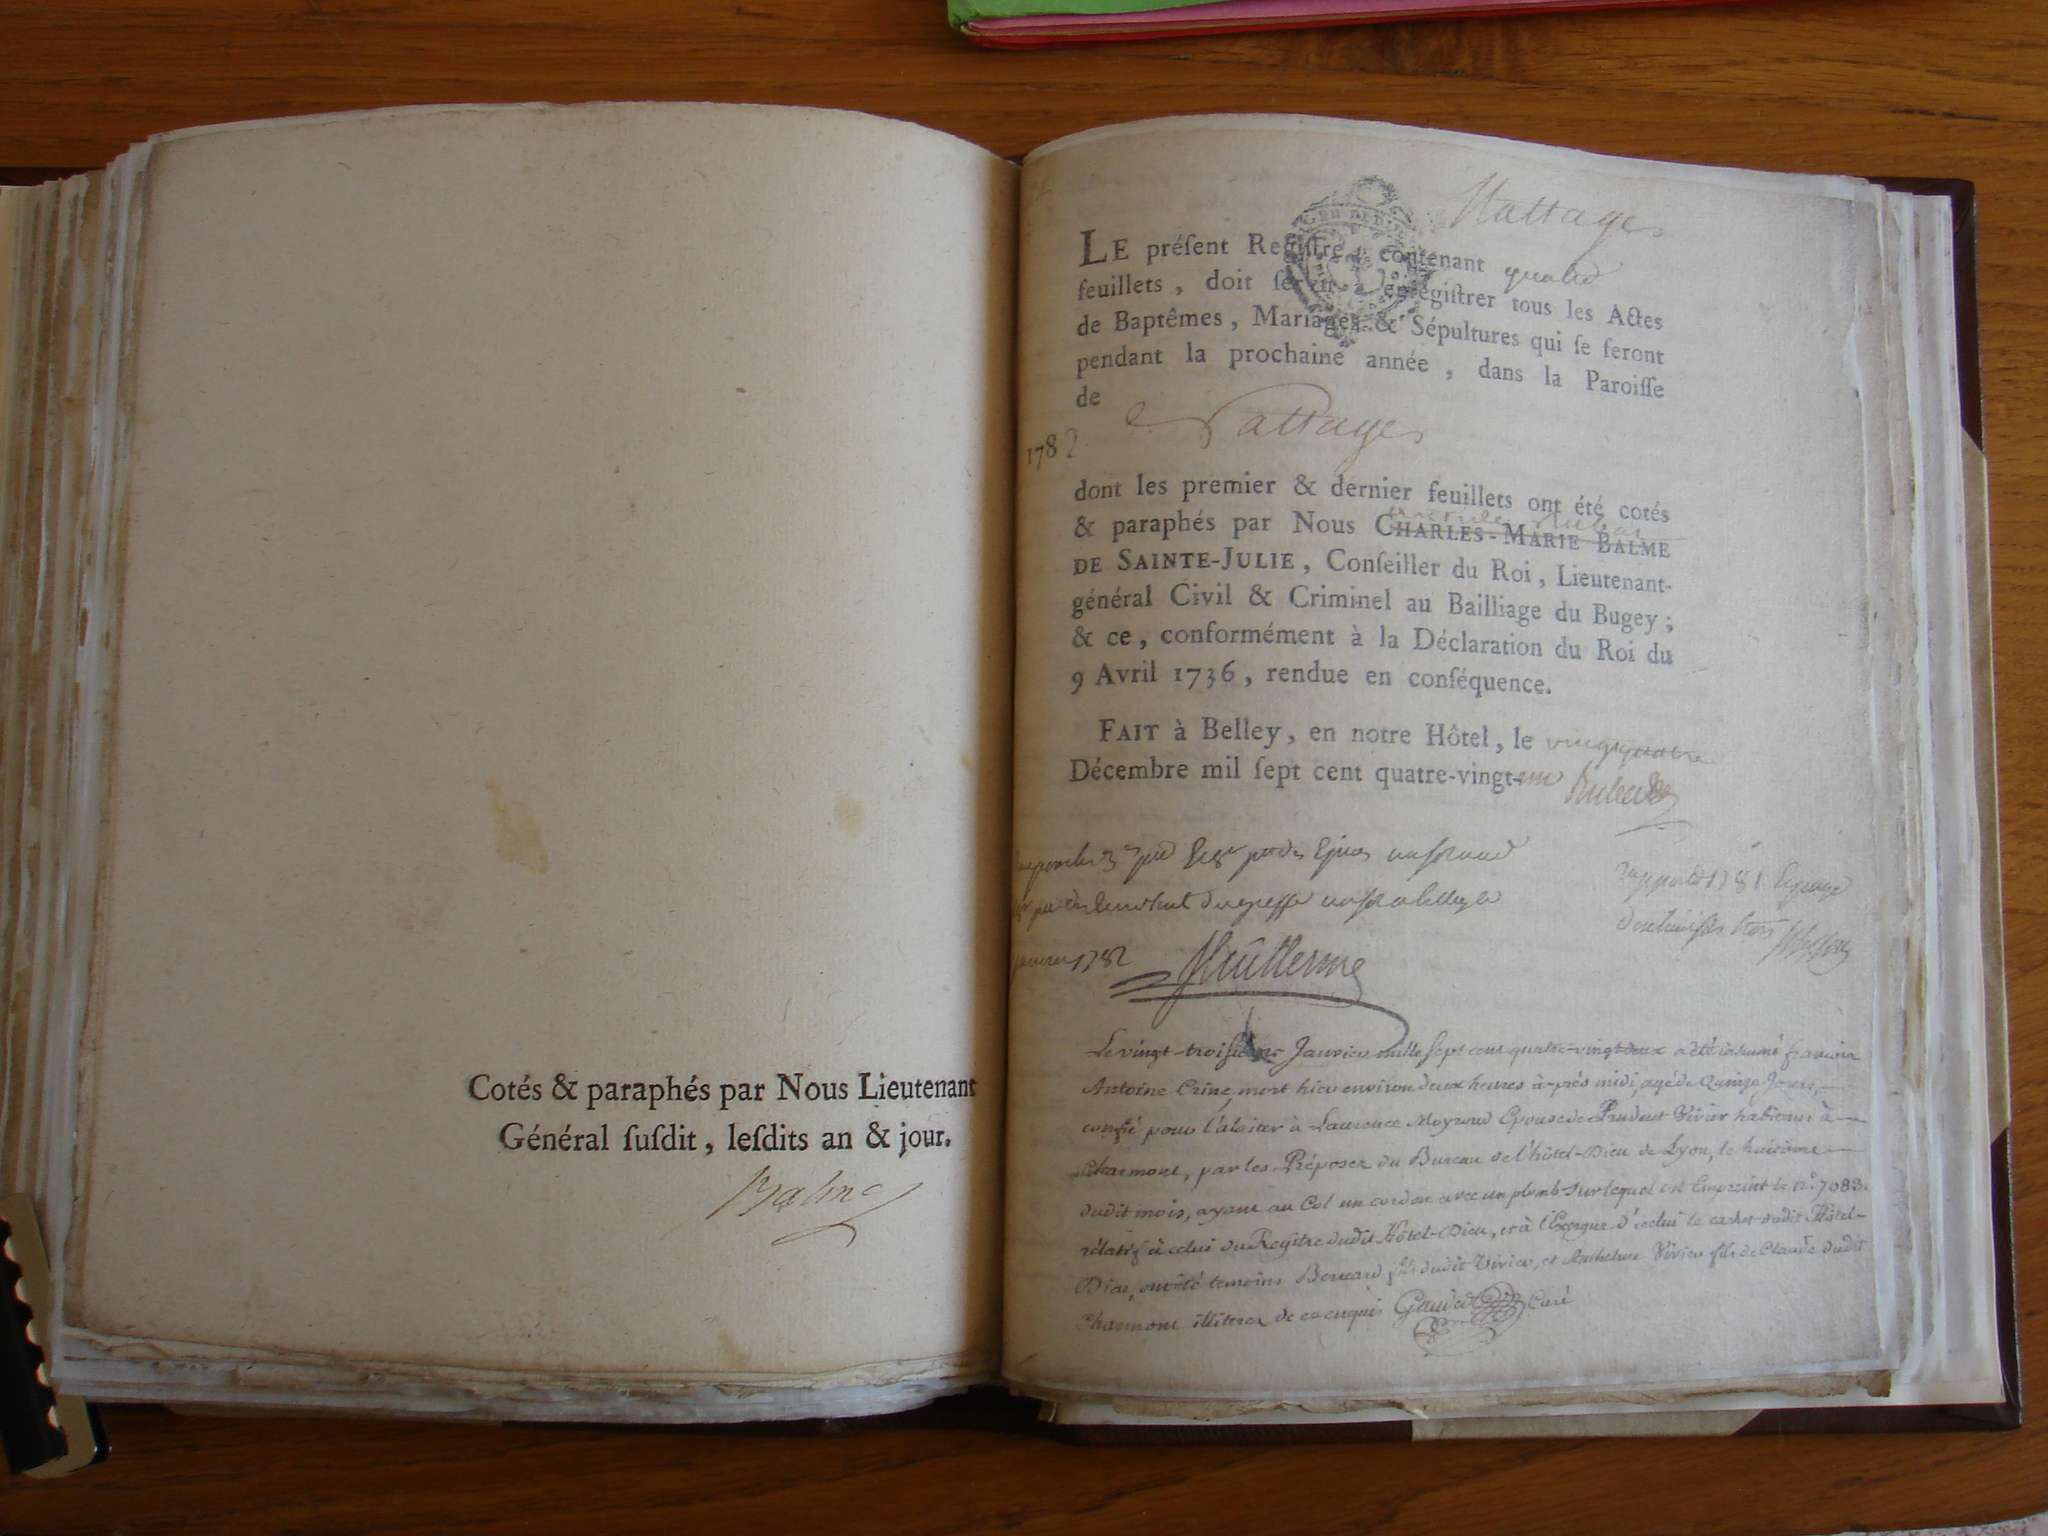 Cotés & paraphés par Nous Lieutenant
Général ſuſdit, leſdits an & jour.
Balme
Nattages
LE préſent Regiſtre, contenant quatre
feuillets, doit ſervir à enregiſtrer tous les Actes
de Baptêmes, Mariages & Sépultures qui ſe feront
pendant la prochaine année, dans la Paroiſſe
de Nattages
1782
dont les premier & dernier feuillets ont été cotés
& paraphés par Nous CHARLES-MARIE BALME
DE SAINTE-JULIE, Conſeiller du Roi, Lieutenant-
général Civil & Criminel au Bailliage du Bugey;
& ce, conformément à la Déclaration du Roi du
9 Avril 1736, rendue en conſéquence.
FAIT à Belley, en notre Hôtel, le vingt quatre
Décembre mil ſept cent quatre-vingt-un
janvier 1782
Le vingt-troisieme Janvier mille sept cent quatre-vingt deux a été inhumé francois
Antoine Crine, mort hier environ deux heures à-près midi, agé de Quinze Jours,
confié pour l'alaiter à Laurence Moyrond Epouse de Prudent Vivier habitans à
Charmont, par les Préposez du Bureau de l'hôtel-Dieu de Lyon, le huitieme
dudit mois, ayant au Col un cordon avec un plomb sur lequel est Empreint le n.° 7083.
rélatif à celui du Regitre dudit Hôtel-Dieu, et à l'Exergue d'icelui le cachet dudit Hôtel-
Dieu, ont été temoins Bernard fils dudit Vivier, et Anthelme Vivier fils de Claude dudit
Charmont illitérez de ce enquis Curé